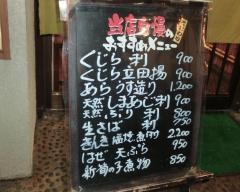 当店自慢の
おすすめメニュー
くじら 刺 900
くじら 立田揚 900
あらうす造り 1,200
天然しまあじ刺 900
天然ぶり 刺 800
生さば 刺 750
きんき塩焼煮付 2200
はぜ 天ぷら 950
新筍の子煮物 850